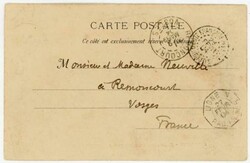 CARTE POSTALE
Ce côté est exclusivement réservé à l'adresse
Monsieur et Madame Neuville
à Remoncourt
Vosges
France